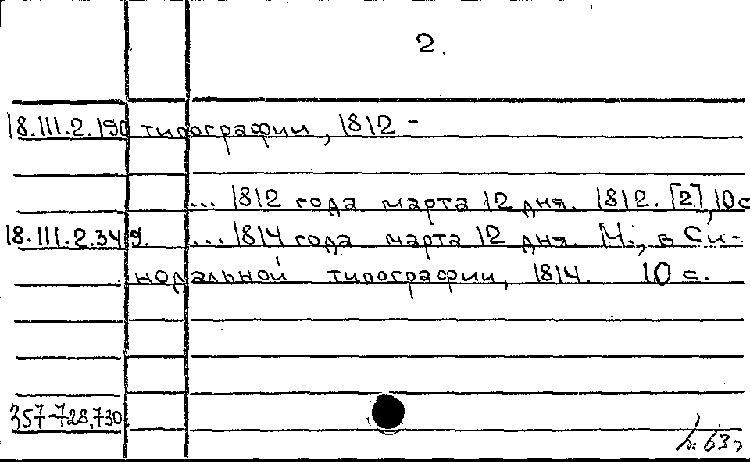 2.
18.III.2.190 типографии, 1812 -
... 1812 года марта 12 дня. 1812. [2], 10 с
18.III.2.349. ... 1814 года марта 12 дня. М., в Си-
нодальной типографии, 1814. 10 с.
357-728,730